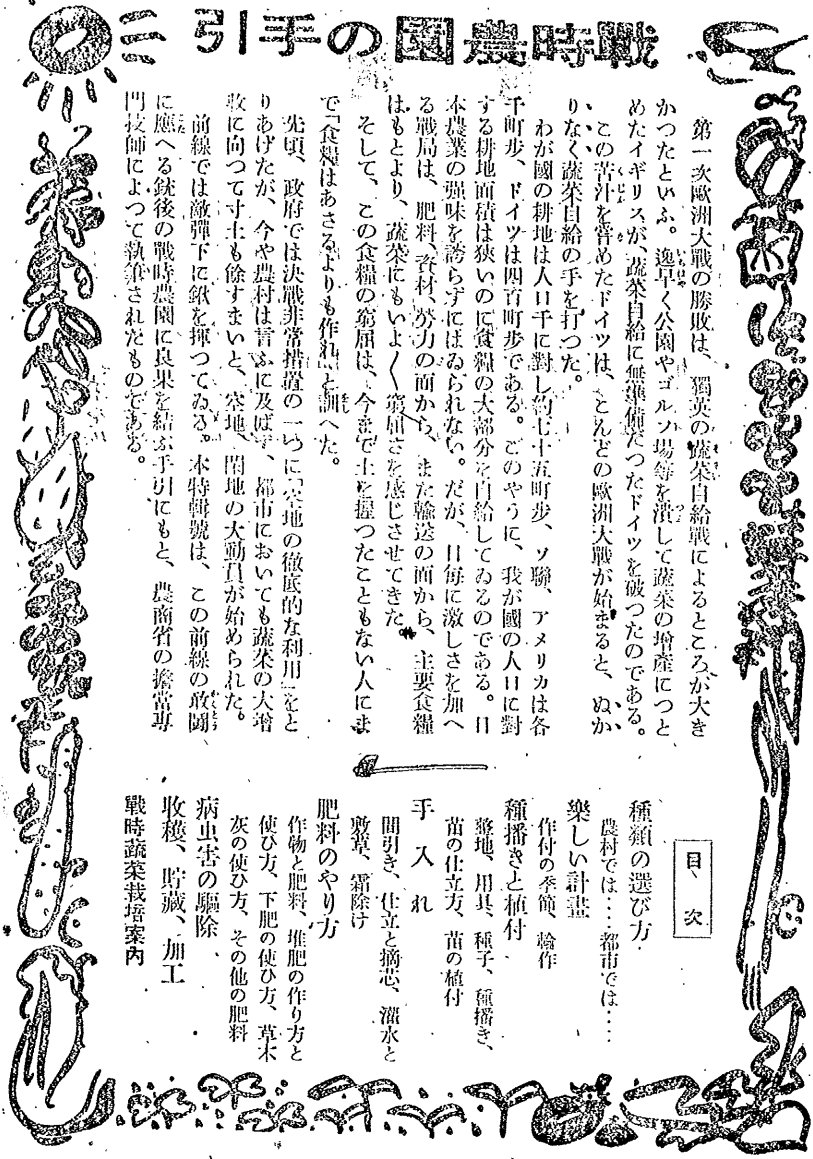 戰時農園の手引
第一次歐洲大戰の勝敗は、獨英の蔬菜自給戰によるところが大き
かつたといふ。逸早く公園やゴルフ場等を潰して蔬菜の增產につと
めたイギリスが、蔬菜自給に無準備だつたドイツを破つたのである。
この苦汁を嘗めたドイツは、こんどの歐洲大戰が始まると、ぬか
りなく蔬菜自給の手を打つた。
わが國の耕地は人口千に對し約七十五町步、ソ聯、アメリカは各
千町步、ドイツは四百町步である。このやうに、我が國の人口に對
する耕地面積は狹いのに食糧の大部分を自給してゐるのである。日
本農業の强味を誇らずにはゐられない。だが、日每に激しさを加へ
る戰局は、肥料、資材、勞力の面から、また輸送の面から、主要食糧
はもとより、蔬菜にもいよ〱窮屈さを感じさせてきた。
そして、この食糧の窮屈は、今まで土を握つたこともない人にま
で「食糧はあさるよりも作れ」と訓へた。
先頃、政府では決戰非常措置の一つに「空地の徹底的な利用」をと
りあげたが、今や農村は言ふに及ばず、都市においても蔬菜の大增
收に向つて寸土も餘すまいと、空地、閑地の大動員が始められた。
前線では敵彈下に鍬を揮つてゐる。本特輯號は、この前線の敢鬪
に應へる銃後の戰時農園に良果を結ぶ手引にもと、農商省の擔當專
門技師によつて執筆されたものである。
目次
種類の選び方
農村では‥‥都市では‥‥
樂しい計畫
作付の季節、輪作
種播きと植付
整地、用具、種子、種播き、
苗の仕立方、苗の植付
手入れ
間引き、仕立と摘芯、灌水と
敷草、霜除け
肥料のやり方
作物と肥料、堆肥の作り方と
使ひ方、下肥の使ひ方、草木
灰の使ひ方、その他の肥料
病虫害の驅除
收穫、貯藏、加工
戰時蔬菜栽培案內